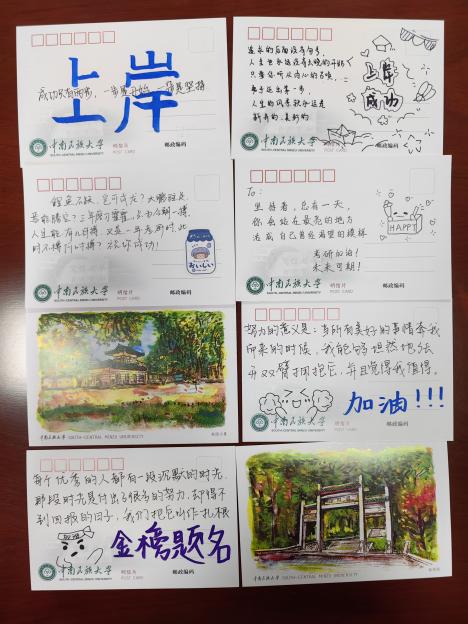 上岸
成功只有两步，一步是开始，一步是坚持
中南民族大学
SOUTH-CENTRAL MINZU UNIVERSITY
明信片
POST CARD
邮政编码
人生也永远没有太晚的开始
只要你听从内心的召唤，
勇于迈出第一步，
人生的风景就永远是
新奇的、美好的
上岸
成功
中南民族大学
SOUTH-CENTRAL MINZU UNIVERSITY
明信片
POST CARD
邮政编码
人生能有几回搏，又是一年考研时，此
时不搏何时搏？祝你成功！
おいしい
中南民族大学
SOUTH-CENTRAL MINZU UNIVERSITY
明信片
POST CARD
邮政编码
To：
坚持着，总有一天，
你会站在最亮的地方
活成自己曾经渴望的模样
考研加油！
未来可期！
HAPPY
中南民族大学
SOUTH-CENTRAL MINZU UNIVERSITY
明信片
POST CARD
邮政编码
中南民族大学 SOUTH-CENTRAL MINZU UNIVERSITY
努力的意义是：当所有美好的事情奔我
而来的时候，我能够坦然地张
开双臂拥抱它，并且觉得我值得。
加油!!!
中南民族大学
SOUTH-CENTRAL MINZU UNIVERSITY
邮政编码
每个优秀的人都有一段沉默的时光
那段时光是付出了很多的努力，却得不
到回报的日子，我们把它叫作扎根
加油
金榜题名
中南民族大学
SOUTH-CENTRAL MINZU UNIVERSITY
明信片
POST CARD
邮政编码
中南民族大学 SOUTH-CENTRAL MINZU UNIVERSITY